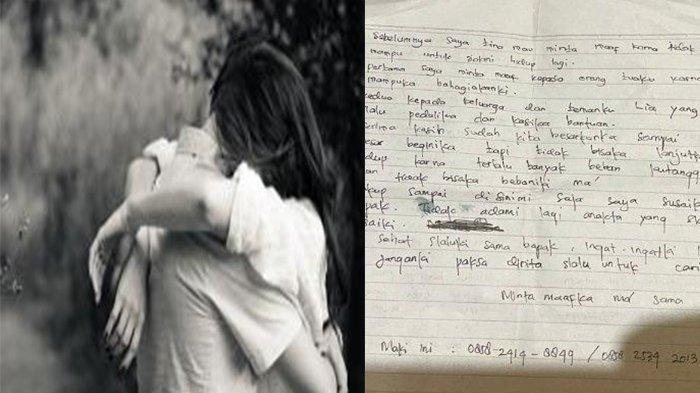 Sebelumnya saya tina mau minta maaf karna tidak
mampu untuk jalani hidup lagi.
pertama saya minta maaf kepada orang tuaku karna
mampuka bahagiakanki.
kedua kepada keluarga dan temanku Lia yang
lalu pedulika dan kasika bantuan.
terima kasih sudah kita besarkanka sampai
besar beginika tapi tidak bisaka lanjut
hidup karna terlalu banyak beban
dan tidak bisaka bebaniki ma'
cukup sampai disinimi saja saya susaik
pak. Tidak adami lagi anakta yang
saiki
sehat slaluki sama bapak, ingat-ingatki
janganki paksa dirita slalu untuk cari
Minta maafka ma' sama
Maki ini : 0858-2414-8849 / 0858 2534 2013